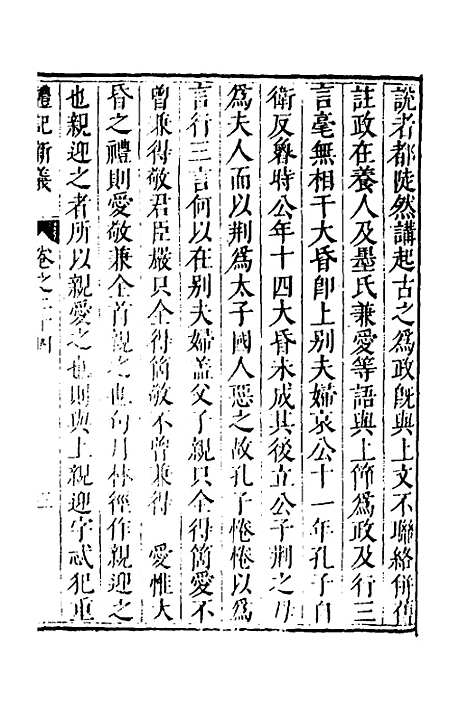 說者都陡然講起古之為政旣與上文不聯絡倂舊
註政在養人及墨氏兼愛等語與上節為政及行三
言毫無相干大昏卽上別夫婦哀公十一年孔子自
衛反魯時公年十四大昏未成其後立公子荆之母
為夫人而以荆為太子國人惡之故孔子惓惓以為
言行三言何以在別夫婦盖父子親只全得箇愛不
曾兼得敬君臣嚴只全得箇敬不曾兼得 愛惟大
昏之禮則愛敬兼全首親之也句月林徑作親迎之
也親迎之者所以親愛之也則與上親迎字忒犯重
禮記新義 卷之二十四 三